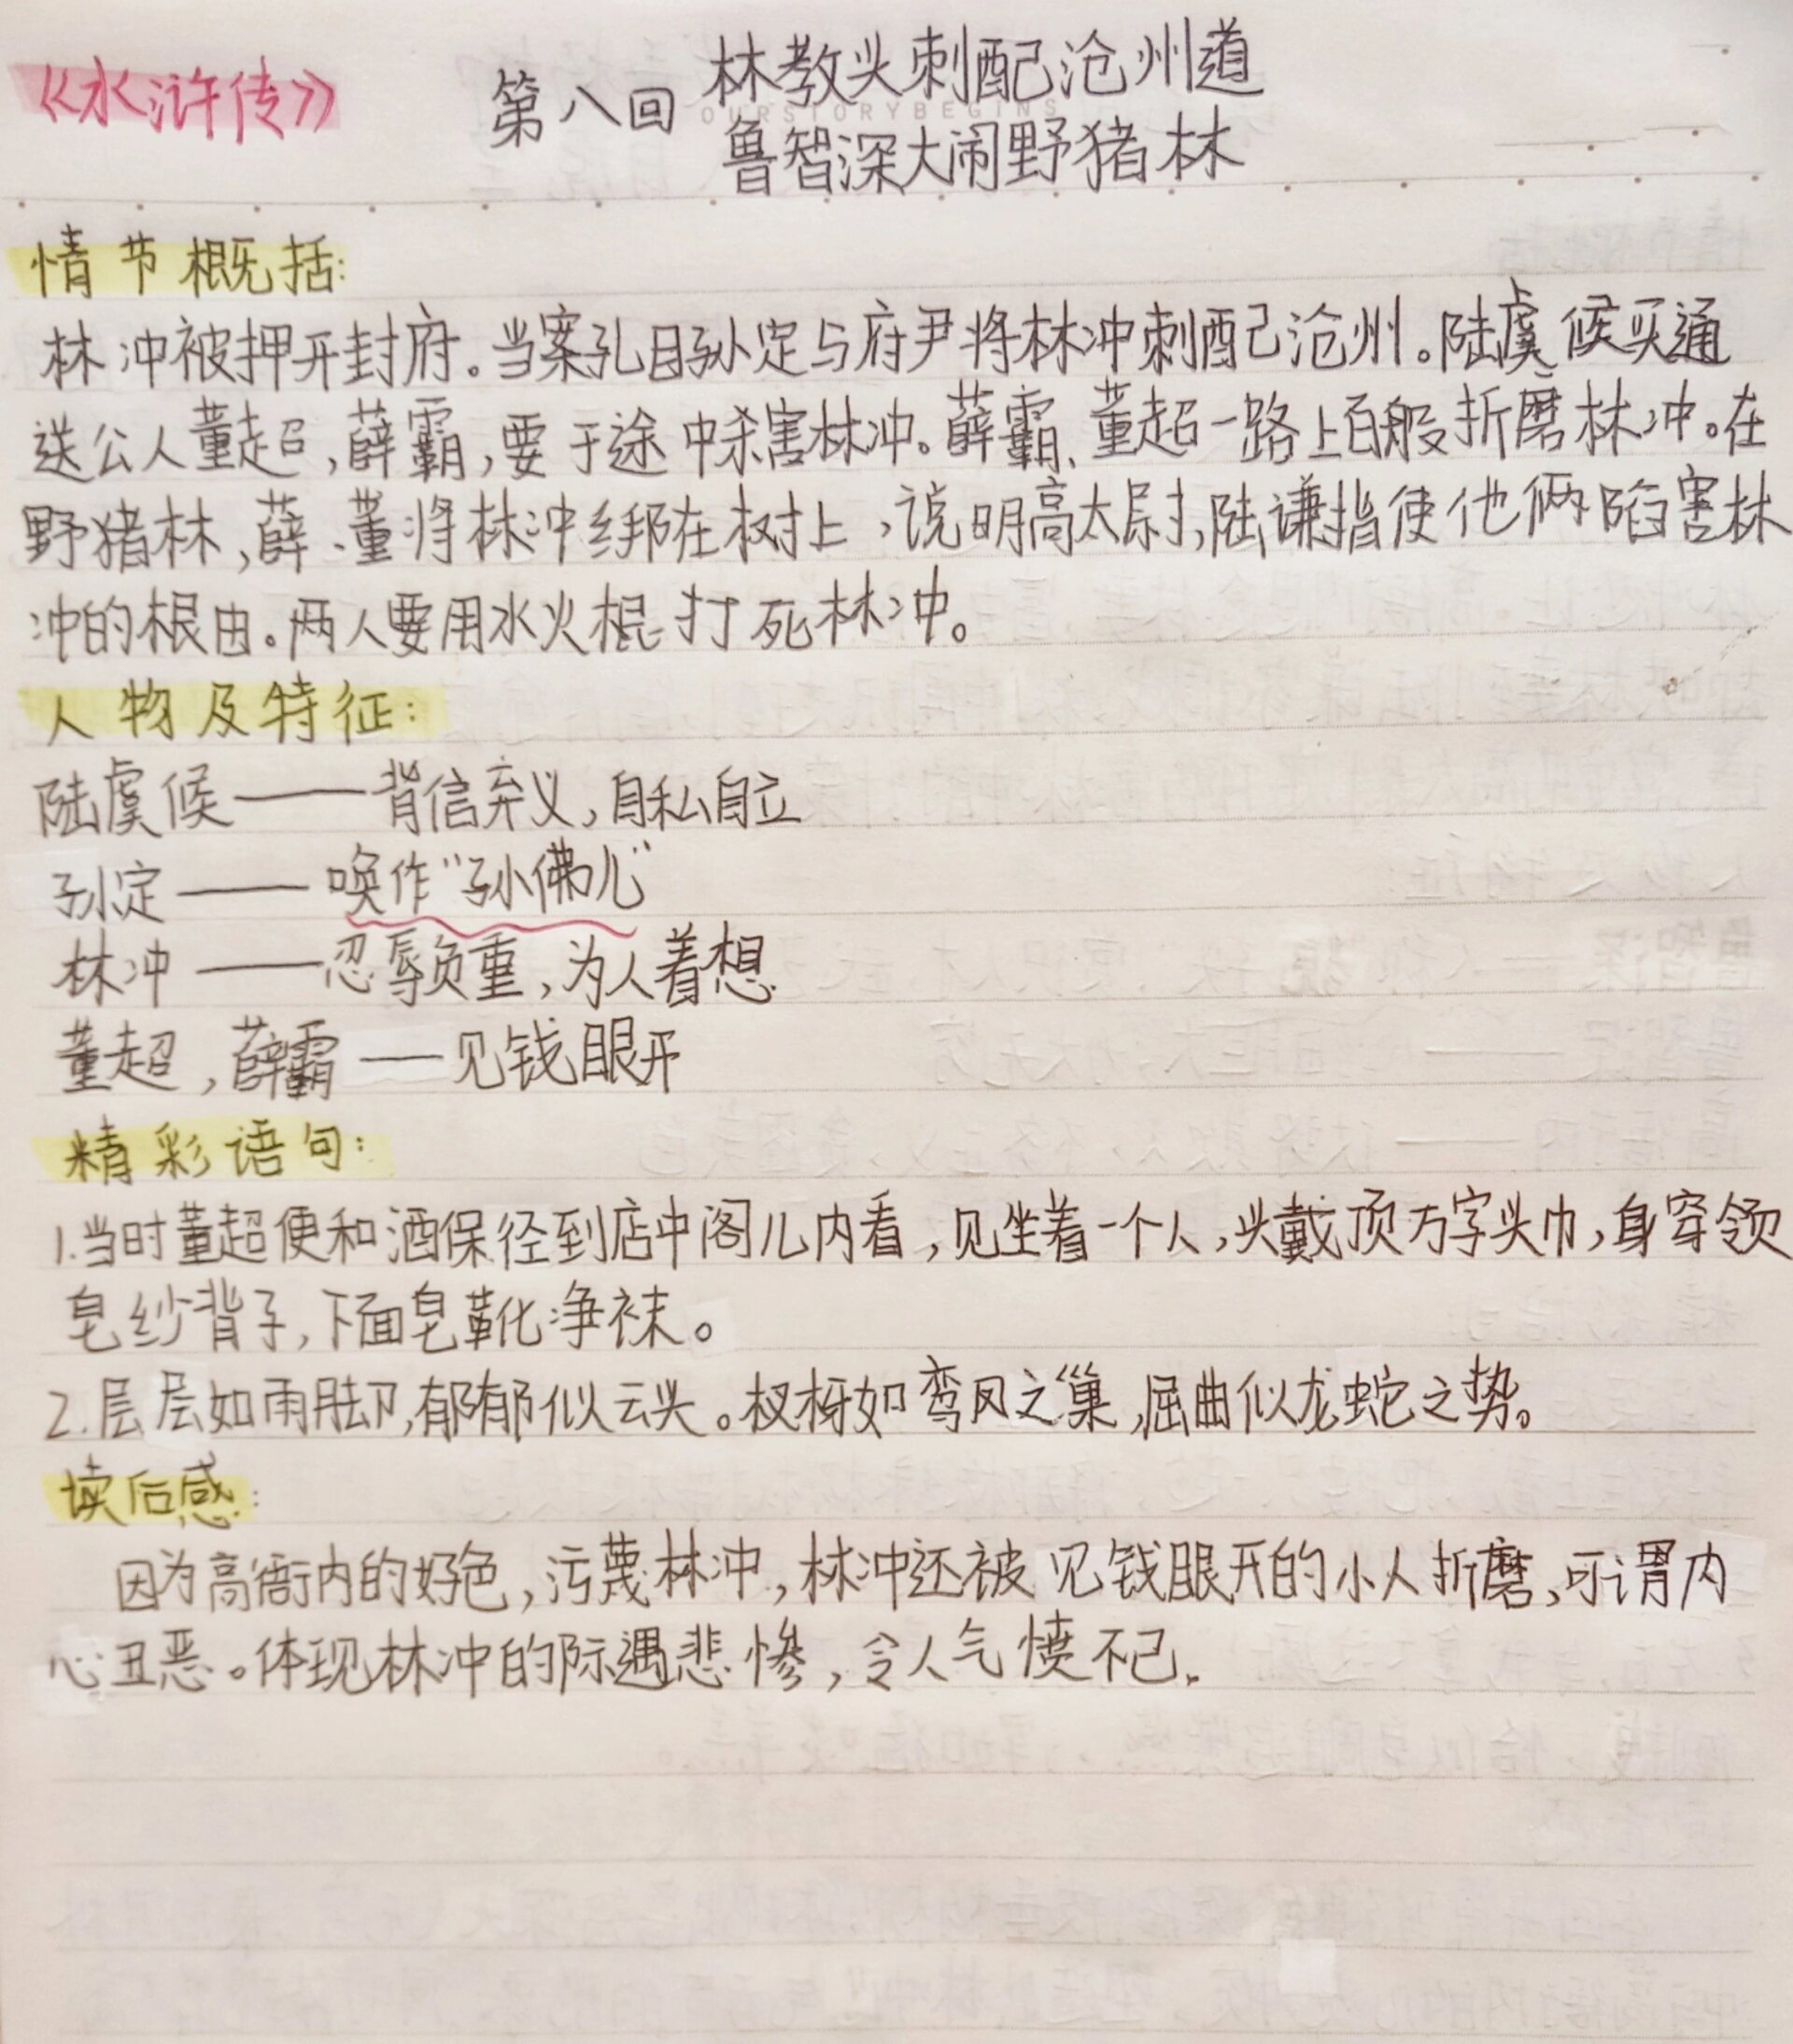 《水浒传》
第八回
林教头刺配沧州道
OURSTORYBEGINS
鲁智深大闹野猪林
情节概括:
林冲被押开封府。当案孔目孙定与府尹将林冲刺配沧州。陆虞候买通
送公人董超,薛霸,要于途中杀害林冲。薛霸、董超一路上百般折磨林冲。在
野猪林,薛、董将林冲绑在树上,说明高太尉,陆谦指使他俩陷害林
冲的根由。两人要用水火棍打死林冲。
人物及特征:
陆虞候——背信弃义,自私自立
孙定——唤作"孙佛儿"
林冲——忍辱负重,为人着想
董超,薛霸——见钱眼开
精彩语句:
1.当时董超便和酒保径到店中阁儿内看,见坐着一个人,头戴顶万字头巾,身穿领
皂纱背子,下面皂靴净袜。
2.层层如雨脚,郁郁似云头。杈枒如鸾凤之巢,屈曲似龙蛇之势。
读后感:
因为高衙内的好色,污蔑林冲,林冲还被见钱眼开的小人折磨,可谓内
心丑恶。体现林冲的际遇悲惨,令人气愤不已.